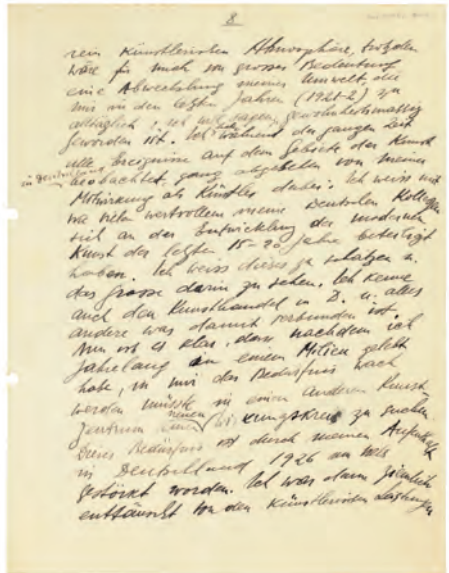 8
rein künstlerischen Atmosphäre, trotzdem
wäre für mich von grosser Bedeutung
eine Abwechslung meiner Umwelt, die
mir in den letzten Jahren (1921-2) zu
alltäglich, ich will sagen, gewohnheitsmässig
geworden ist. Ich habe während der ganzen Zeit
alle Ereignisse auf dem Gebiete der Kunst
in Deutschland
beobachtet, ganz abgesehen von meiner
Mitwirkung als Künstler dabei. Ich weiss
wie viele wertvollem meine Deutschen Kollegen
sich an der Entwicklung der modernen
Kunst der letzten 15-20 Jahre beteiligt
haben. Ich weiss dieses zu schätzen u.
das Grosse darin zu sehen. Ich kenne
auch den Kunsthandel in D. u. alles
andere was damit verbunden ist.
Nun ist es klar, dass nachdem ich
Jahrelang in einem Milieu gelebt
habe, in mir das Bedürfnis wach
werden müsste in einem anderen Kunst
zentrum einen neuen Wirkungskreis zu suchen
Dieses Bedürfnis ist durch meinen Aufenthalt
in Deutschland 1926
gestärkt worden. Ich war dann ziemlich
enttäuscht von den künstlerischen Leistungen